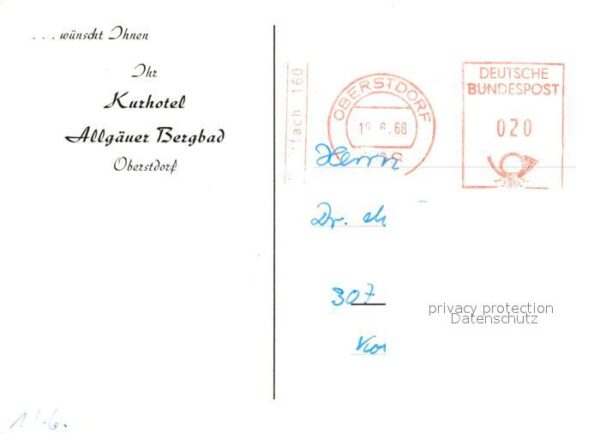 . . . wünscht Ihnen
Ihr
Kurhotel
Allgäuer Bergbad
Oberstdorf
160
OBERSTDORF
DEUTSCHE
BUNDESPOST
020
Herrn
Dr.
307
privacy protection
Datenschutz